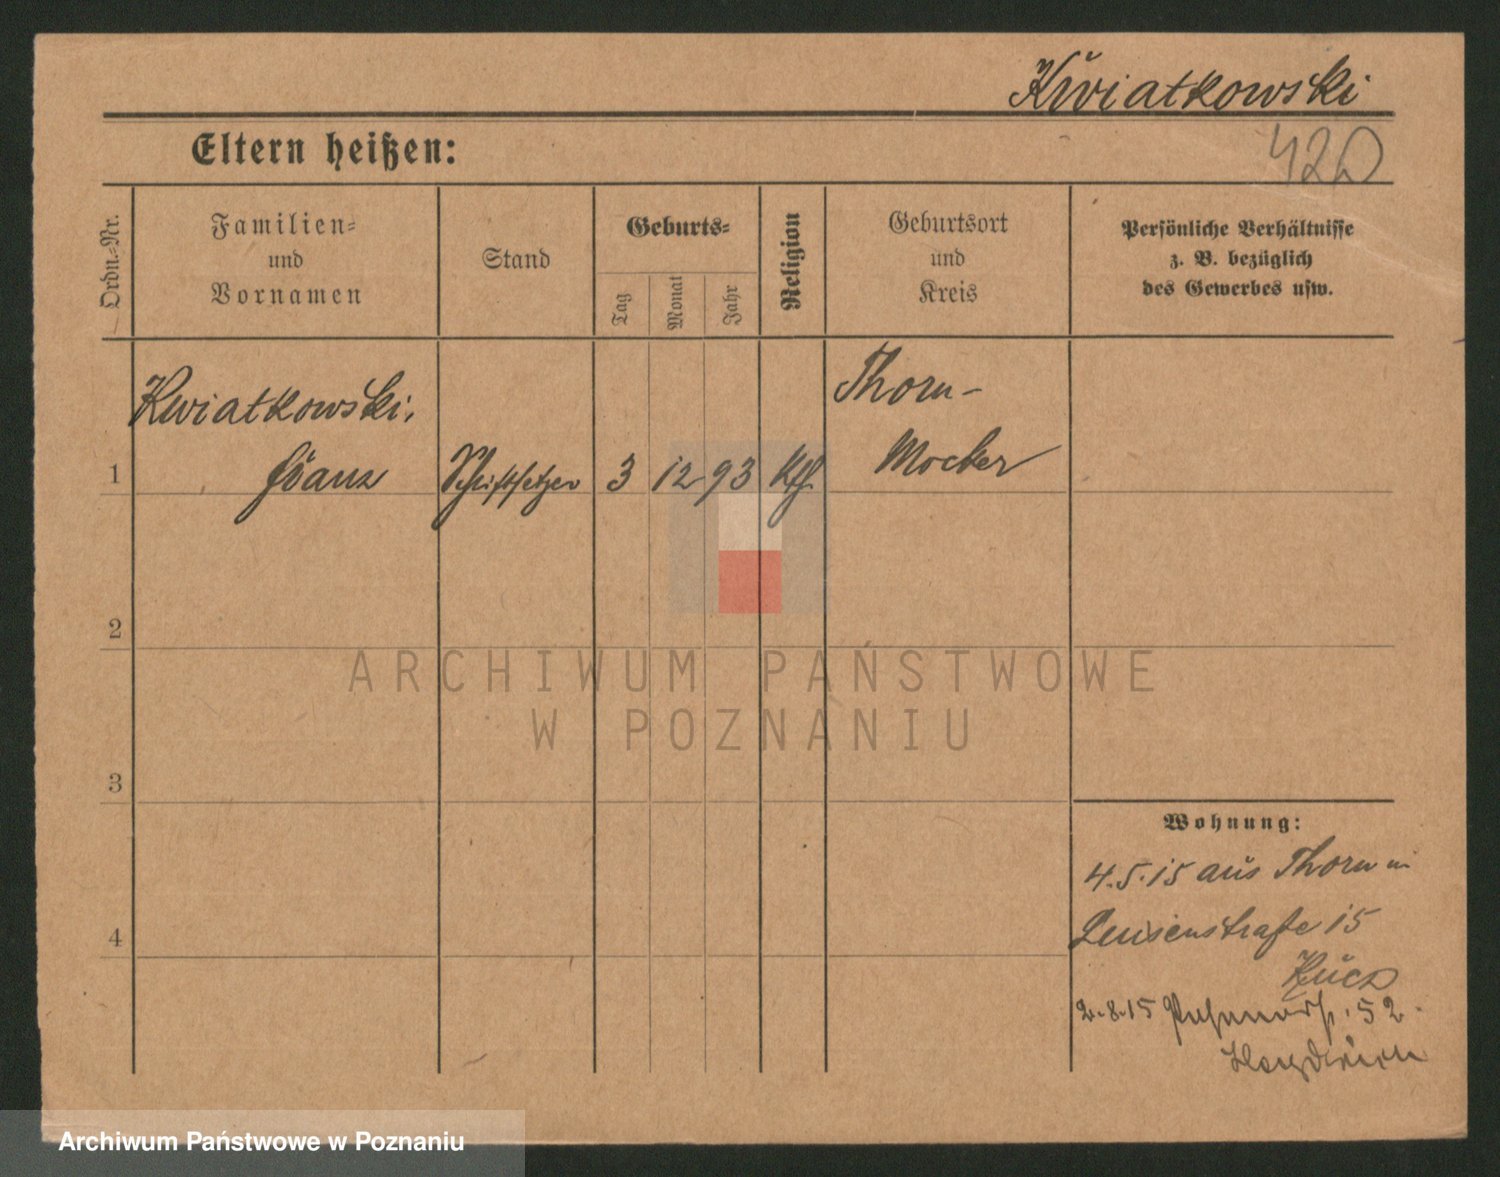 Kwiatkowski
420
Eltern heißen:
Ordn.-Nr.
Familien-
und
Vornamen
Stand
Geburts-
Tag
Monat
Jahr
Religion
Geburtsort
und
Kreis
Persönliche Verhältnisse
z. B. bezüglich
des Gewerbes usw.
1
Kwiatkowski,
Franz
Schriftsetzer
3
12
93
Kth.
Thorn-
Mocker
2
3
4
ARCHIWUM PAŃSTWOWE
W POZNANIU
Wohnung:
4.5.15 aus Thorn in
Luisenstraße 15
2.8.15
52
Archiwum Państwowe w Poznaniu